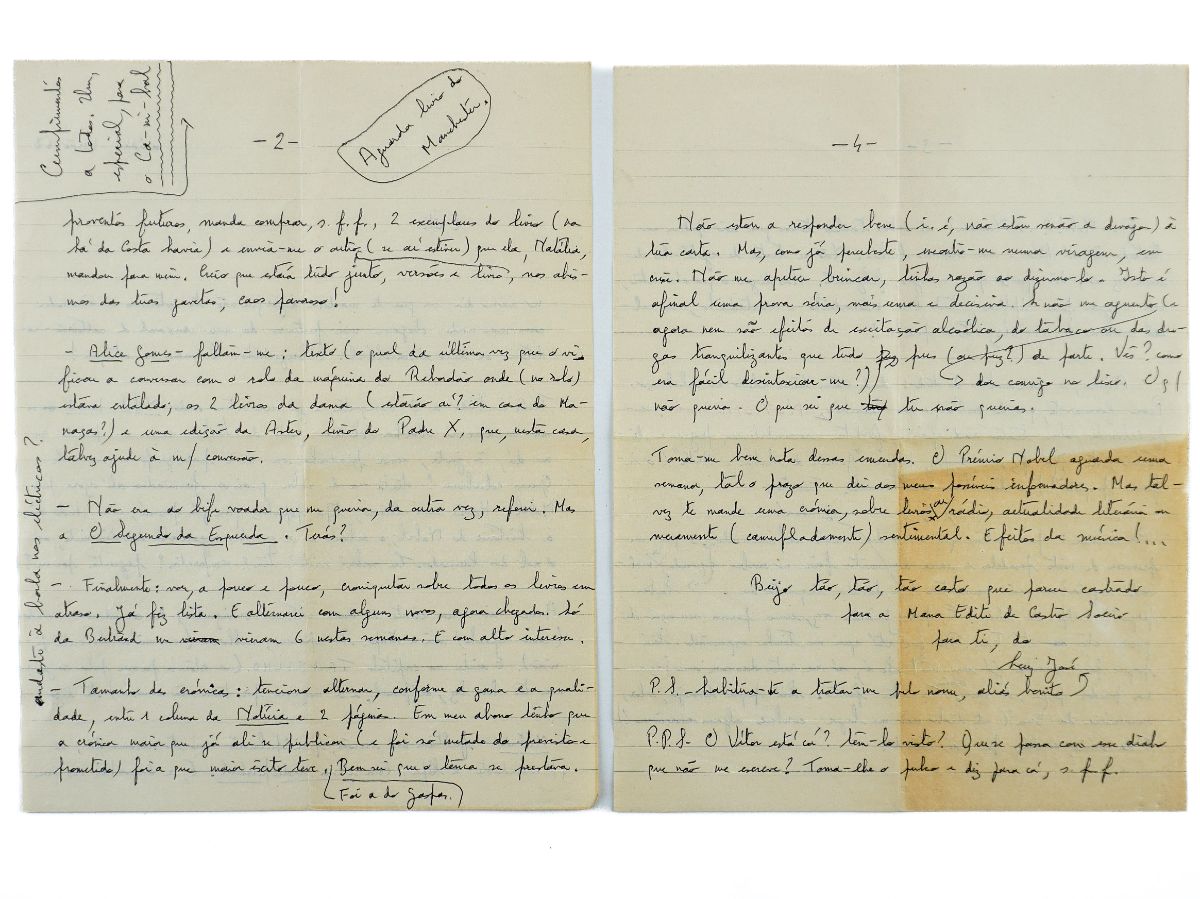 Cumprimentos
a todos. Um,
especial, para
o Ca-ni-bal
- 2 -
Aguarda livro do
Manchester.
proventos futuros, manda comprar, s. f. f., 2 exemplares do livro (na
Sá da Costa havia) e envia-me o outro (se aí estiver) que ela, Natália,
mandou para mim. Creio que estará tudo junto, versões e livro, nos abis-
mos das tuas gavetas; caos pavoroso!
- Alice Gomes - faltam-me: texto (o qual da última vez que o vi
ficou a conversar com o rolo da máquina do Rebordão onde (no rolo)
estava entalado; os 2 livros da dama (estarão aí? em casa do Ma-
naças?) e uma edição da Aster, livro do Padre X, que, nesta casa,
talvez ajude à m/ conversão.
- Não era ao bife voador que me queria, da outra vez, referir. Mas
a O Segundo da Esquerda. Terás?
- Finalmente: vou, a pouco e pouco, croniquitar sobre todos os livros em
atraso. Já fiz lista. E alternarei com alguns novos, agora chegados. Só
da Bertrand me vieram 6 nestas semanas. E com alto interesse.
- Tamanho das crónicas: tenciono alternar, conforme a gana e a quali-
dade, entre 1 coluna da Notícia e 2 páginas. Em meu abono tenho que
a crónica maior que já ali se publicou (e foi só metade do previsto e
prometido) foi a que maior êxito teve. Bem sei que o tema se prestava.
(Foi a do Gaspar.)
andaste à borla nos eléctricos?
- 4 -
Não estou a responder bem (i. é, não estou senão a divagar) à
tua carta. Mas, como já percebeste, encontro-me numa viragem, em
crise. Não me apetece brincar, tinhas razão ao dizermo-lo. Isto é
afinal uma prova séria, mais uma e decisiva. Se não me aguento (e
agora nem são efeitos de excitação alcoólica, do tabaco ou das dro-
gas tranquilizantes que tudo pus (ou fiz?) de parte. Vês? como
era fácil desintoxicar-me?)) → dou comigo no lixo. O q/
não queria. O que sei que tu não queiras.
Toma-me bem nota dessas emendas. O Prémio Nobel aguarda uma
semana, tal o prazo que dei aos meus possíveis informadores. Mas tal-
vez te mande uma crónica, sobre livros, ou rádio, actualidade literária ou
meramente (camufladamente) sentimental. Efeitos da música!...
Beijo tão, tão, tão casto que parece castrado
para a Mana Edite de Castro Soeiro
para ti, do
Luiz José
P.S. - habitua-te a tratar-me pelo nome, aliás bonito
P.P.S. - O Vítor está cá? tem-lo visto? Que se passa com esse diabo
que não me escreve? Toma-lhe o pulso e diz para cá, s. f. f.